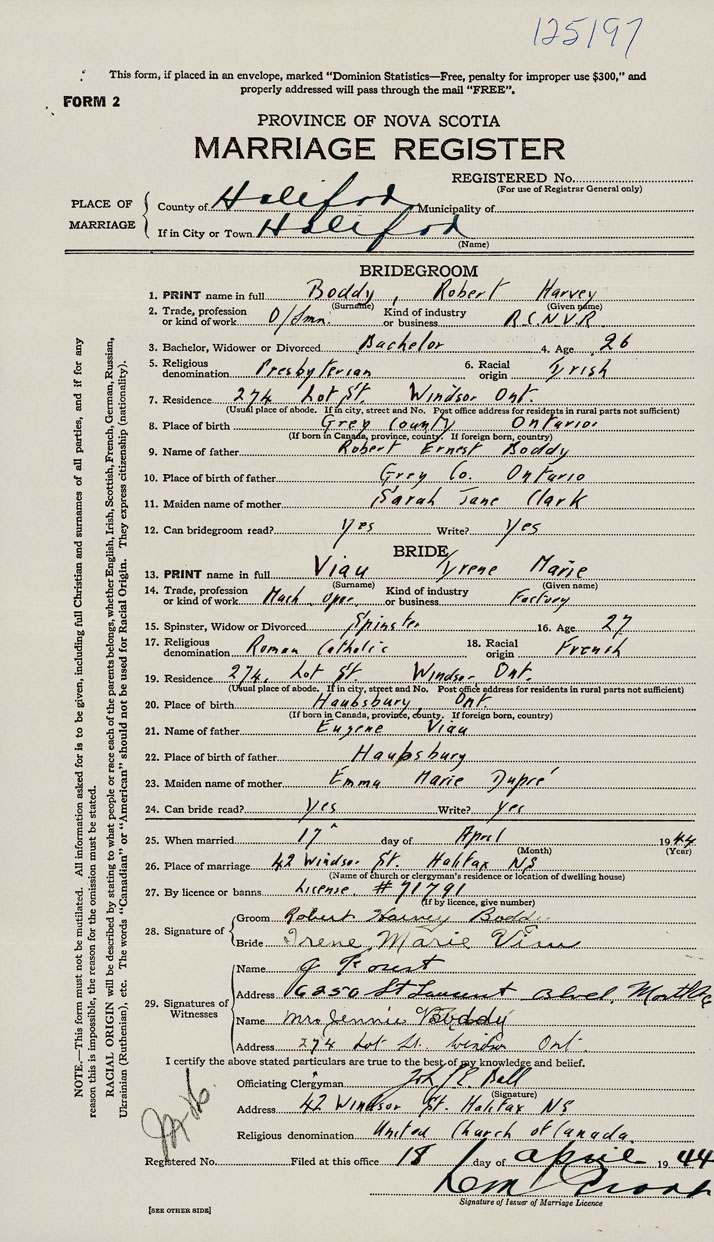 125197
This form, if placed in an envelope, marked "Dominion Statistics—Free, penalty for improper use $300," and
properly addressed will pass through the mail "FREE".
FORM 2
PROVINCE OF NOVA SCOTIA
MARRIAGE REGISTER
REGISTERED No.
(For use of Registrar General only)
PLACE OF MARRIAGE
County of Halifax Municipality of
If in City or Town Halifax
(Name)
BRIDEGROOM
1. PRINT name in full Boddy, Robert Harvey
(Surname) (Given name)
2. Trade, profession or kind of work O/Smn. Kind of industry or business R.C.N.V.R
3. Bachelor, Widower or Divorced Bachelor 4. Age 26
5. Religious denomination Presbyterian 6. Racial origin Irish
7. Residence 274 Lot St. Windsor Ont.
(Usual place of abode. If in city, street and No. Post office address for residents in rural parts not sufficient)
8. Place of birth Grey County Ontario
(If born in Canada, province, county. If foreign born, country)
9. Name of father Robert Ernest Boddy
10. Place of birth of father Grey Co. Ontario
11. Maiden name of mother Sarah Jane Clark
12. Can bridegroom read? Yes Write? Yes
BRIDE
13. PRINT name in full Viau Irene Marie
(Surname) (Given name)
14. Trade, profession or kind of work Mach. Oper. Kind of industry or business Factory
15. Spinster, Widow or Divorced Spinster 16. Age 27
17. Religious denomination Roman Catholic 18. Racial origin French
19. Residence 274 Lot St Windsor Ont.
(Usual place of abode. If in city, street and No. Post office address for residents in rural parts not sufficient)
20. Place of birth Haubsbury Ont.
(If born in Canada, province, county. If foreign born, country)
21. Name of father Eugene Viau
22. Place of birth of father Haubsbury
23. Maiden name of mother Emma Marie Dupré
24. Can bride read? Yes Write? Yes
25. When married 17 day of April 1944
(Month) (Year)
26. Place of marriage 42 Windsor St. Halifax NS
(Name of church or clergyman's residence or location of dwelling house)
27. By licence or banns License #71791
(If by licence, give number)
28. Signature of
Groom Robert Harvey Boddy
Bride Irene Marie Viau
29. Signatures of Witnesses
Name
Address 6250 St Laurent Blvd,
Name Mrs Jennie Boddy
Address 274 Lot St. Windsor Ont.
I certify the above stated particulars are true to the best of my knowledge and belief.
Officiating Clergyman Ball
(Signature)
Address 42 Windsor St. Halifax NS
Religious denomination United Church of Canada
Registered No. Filed at this office 18 day of April 1944
Signature of Issuer of Marriage Licence
[SEE OTHER SIDE]
NOTE.—This form must not be mutilated. All information asked for is to be given, including full Christian and surnames of all parties, and if for any
reason this is impossible, the reason for the omission must be stated.
RACIAL ORIGIN will be described by stating to what people or race each of the parents belongs, whether English, Irish, Scottish, French, German, Russian,
Ukrainian (Ruthenian), etc. The words "Canadian" or "American" should not be used for Racial Origin. They express citizenship (nationality).